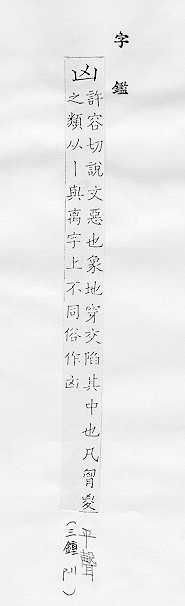 字鑑
凶
許容切說文惡也象地穿交陷其中也凡胷㚇
之類从丨與离字上不同俗作
平聲
(三鍾門)